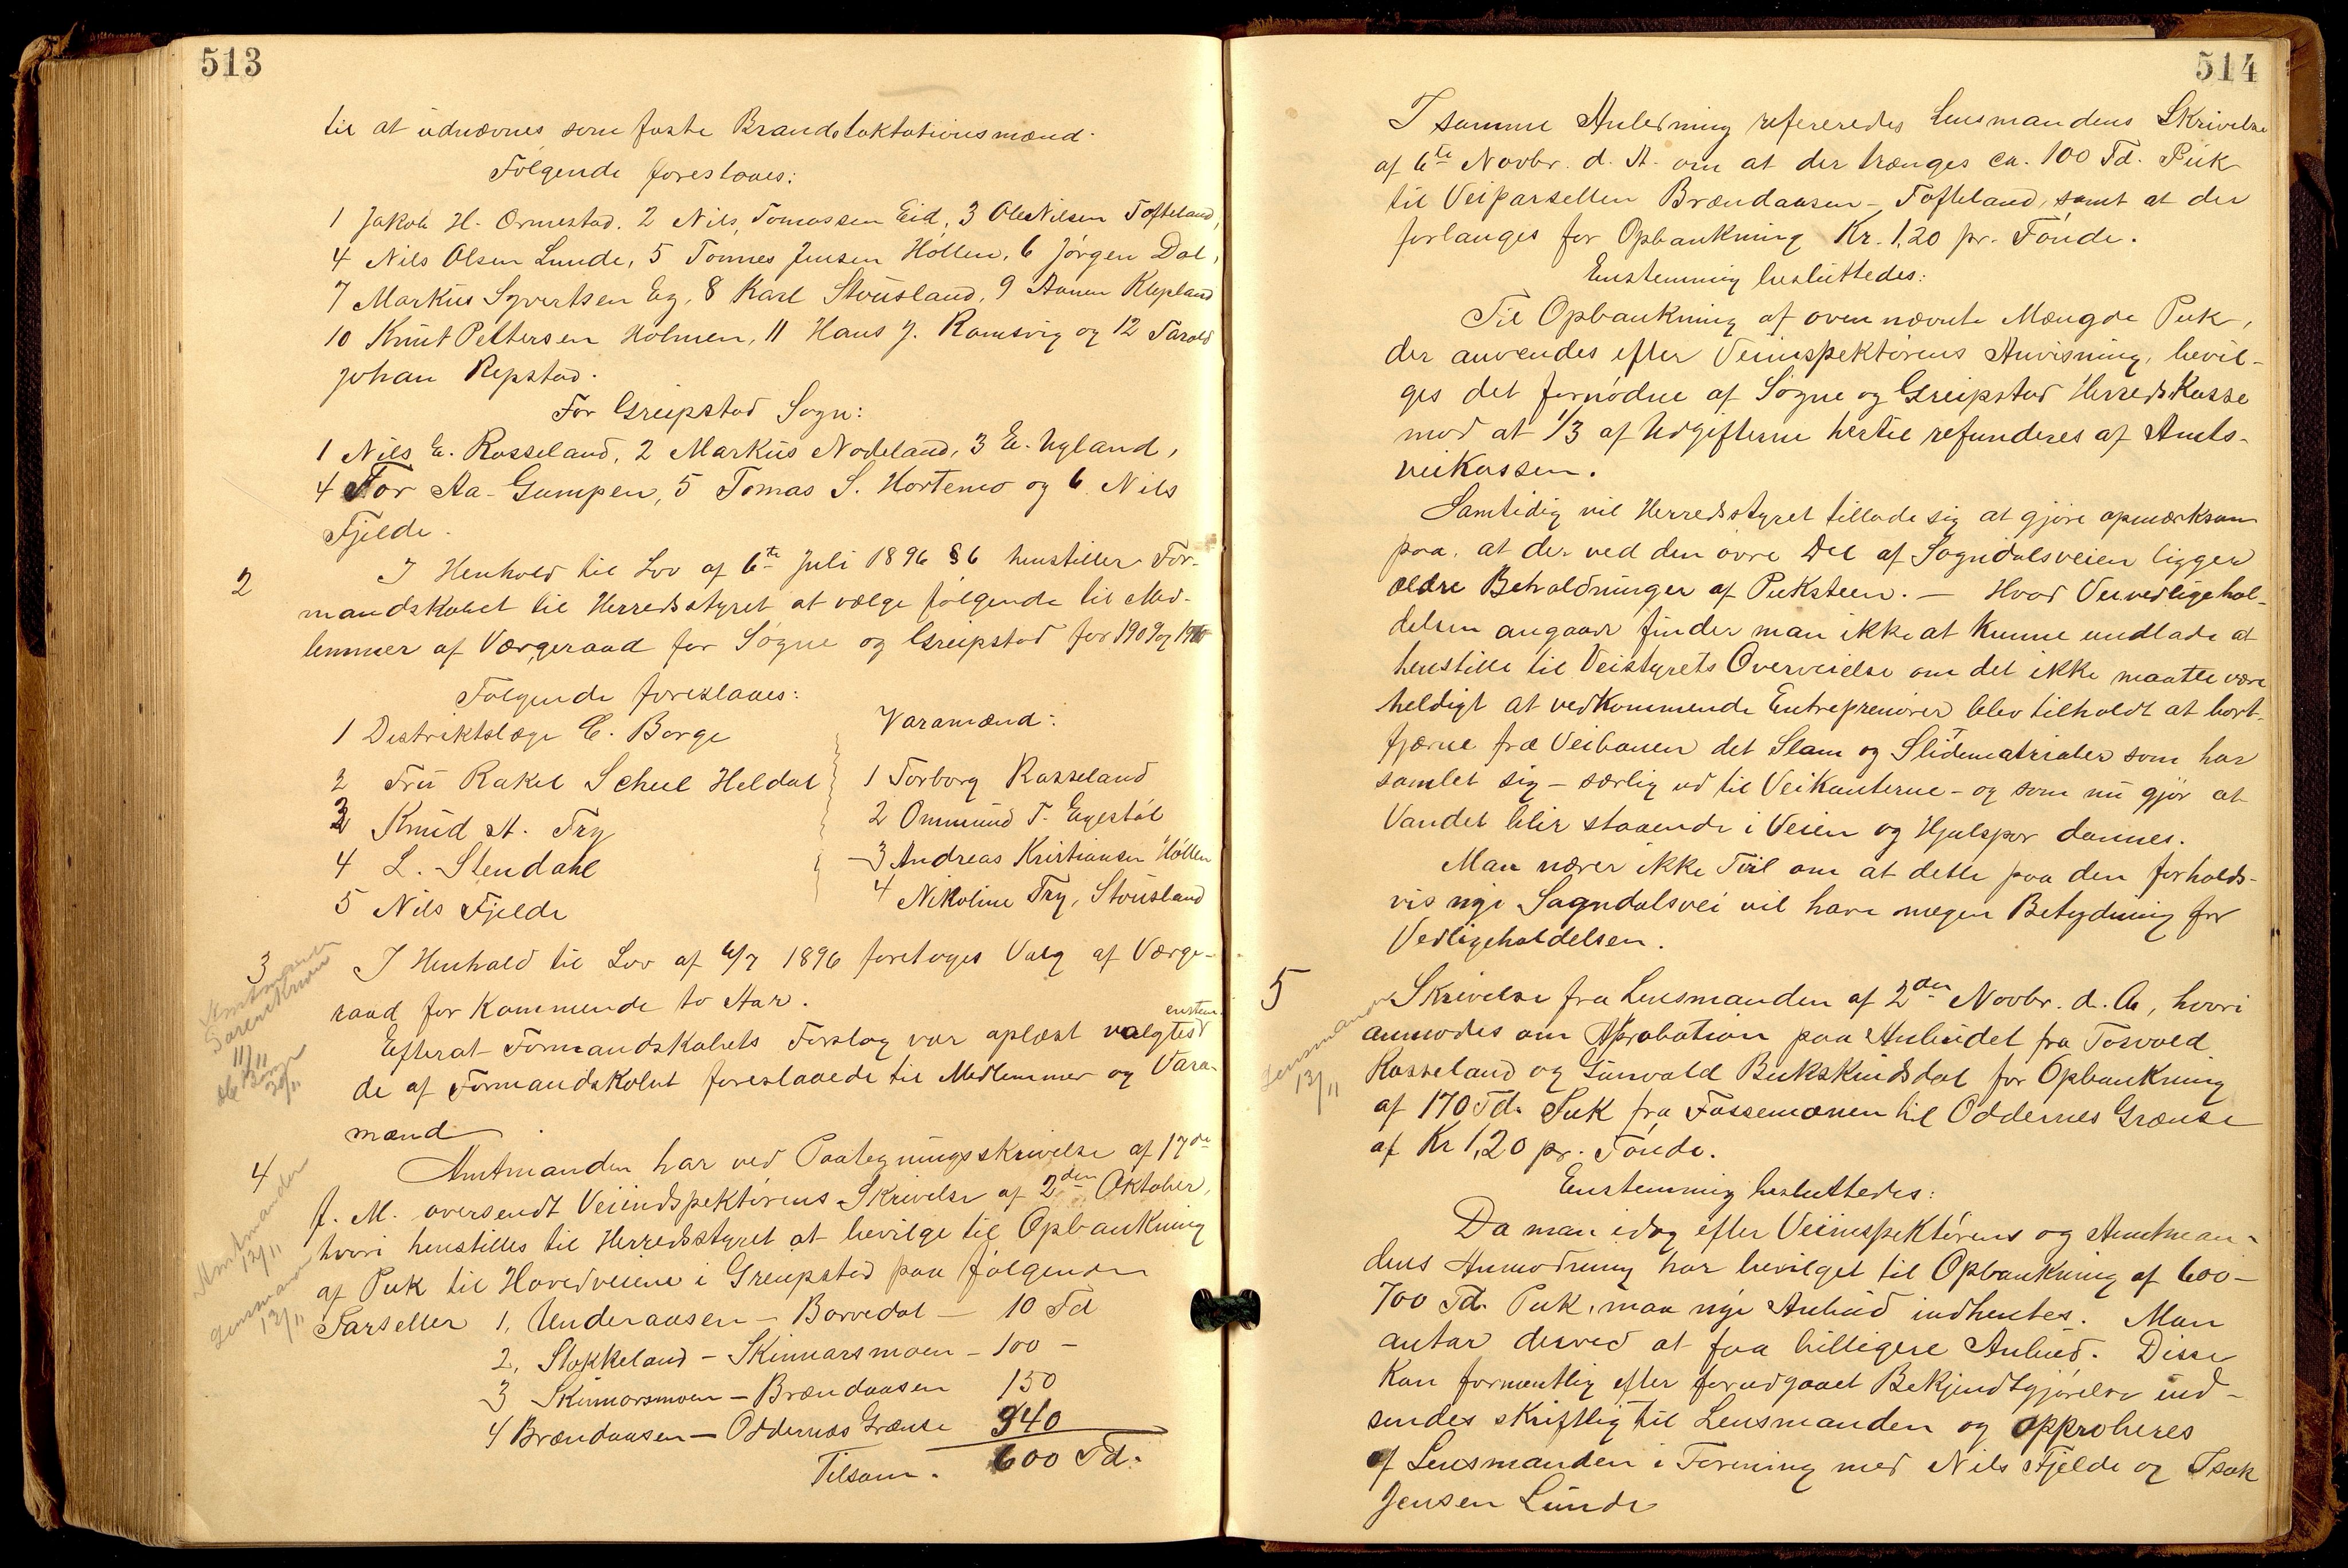 513
til at udnævnes som faste Brandstaktationsmænd.
Følgende foreslaaes:
1 Jakob H. Ormestad. 2 Nils Tomassen Eid, 3 Ole Nilsen Tofteland,
4 Nils Olsen Lunde, 5 Tønnes Jensen Høllen, 6 Jørgen Dal,
7 Markus Syvertsen Eg, 8 Karl Stousland, 9 Aanen Klepland
10 Knut Pettersen Holmen, 11 Hans J. Ramsvig og 12 Tarald
Johan Repstad.
For Greipstad Sogn:
1 Nils E. Rosseland, 2 Markus Nodeland, 3 E. Ugland,
4 Tor Aa. Gumpen, 5 Tomas S. Hortemo og 6 Nils
Fjelde.
2 I Henhold til Lov af 6te Juli 1896 § 6 henstiller For-
mandskabet til Herredsstyret at vælge følgende til Med-
lemmer af Værgeraad for Søgne og Greipstad for 1909 og 1910
Følgende foreslaaes:
1 Distriktslæge C. Borge
2 Fru Rakel Scheel Heldal
3 Knud A. Try
4 L. Stendahl
5 Nils Fjelde
Varamænd:
1 Torborg Rosseland
2 Ommund T. Egestøl
3 Andreas Kristiansen Høllen
4 Nikoline Try, Stousland
3 I Henhold til Lov af 6/7 1896 foretoges Valg af Værge-
raad for kommende to Aar.
Efterat Formandskabets Forslag var oplæst valgtes enstem.
de af Formandskabet foreslaaede til Medlemmer og Vara-
mænd.
Sorenskriver
11/11
20/11
4 Amtmanden har ved Paategningsskrivelse af 17de
f. M. oversendt Veiindspektørens Skrivelse af 2den Oktober,
hvori henstilles til Herredsstyret at bevilge til Opbankning
af Puk til Hovedveiene i Greipstad paa følgende
Parseller 1, Underaasen - Borvedal - 10 Td
2, Stokkeland - Skinnarsmoen - 100 -
3 Skinnarsmoen - Brændaasen 150
4 Brændaasen - Oddernes Grænse 340
Tilsam. 600 Td.
Amtmanden
12/11
Lensmanden
12/11
514
I samme Anledning refereredes Lensmandens Skrivelse
af 6te Novbr. d. A. om at der trænges ca. 100 Td. Puk
til Veiparsellen Brændaasen - Tofteland, samt at der
forlanges for Opbankning Kr. 1,20 pr. Tønde.
Enstemmig besluttedes:
Til Opbankning af ovennævnte Mængde Puk,
der anvendes efter Veiinspektørens Anvisning, bevil-
ges det fornødne af Søgne og Greipstad Herredskasse
mod at 1/3 af Udgifterne hertil refunderes af Amts-
veikassen.
Samtidig vil Herredsstyret tillade sig at gjøre opmærksom
paa, at der ved den øvre Del af Sogndalsveien ligger
ældre Beholdninger af Puksten. — Hvad Veivedligehol-
delsen angaar finder man ikke at kunne undlade at
henstille til Veistyrets Overveielse om det ikke maatte være
heldigt at vedkommende Entreprenører blev tilholdt at bort-
fjærne fra Veibanen det Slam og Slidematrialer som har
samlet sig - særlig ud til Veikanterne - og som nu gjør at
Vandet blir staaende i Veien og Hjulspor dannes.
Man nærer ikke Tvil om at dette paa den forholds-
vis nye Sogndalsvei vil have megen Betydning for
Vedligeholdelsen.
5 Skrivelse fra Lensmanden af 2den Novbr. d. A., hvori
anmodes om Aprobation paa Anbudet fra Tosvald
Rosseland og Gunvald Bukskindsdal for Opbankning
af 170 Td. Puk fra Fossemoen til Oddernes Grænse
af Kr 1,20 pr. Tønde.
Lensmanden
12/11
Enstemmig besluttedes:
Da man idag efter Veiinspektørens og Amtman-
dens Anmodning har bevilget til Opbankning af 600 -
700 Td. Puk, maa nye Anbud indhentes. Man
antar derved at faa billigere Anbud. Disse
kan formentlig efter forudgaaet Bekjendtgjørelse ind-
sendes skriftlig til Lensmanden og approberes
af Lensmanden i Forening med Nils Fjelde og Isak
Jensen Lunde